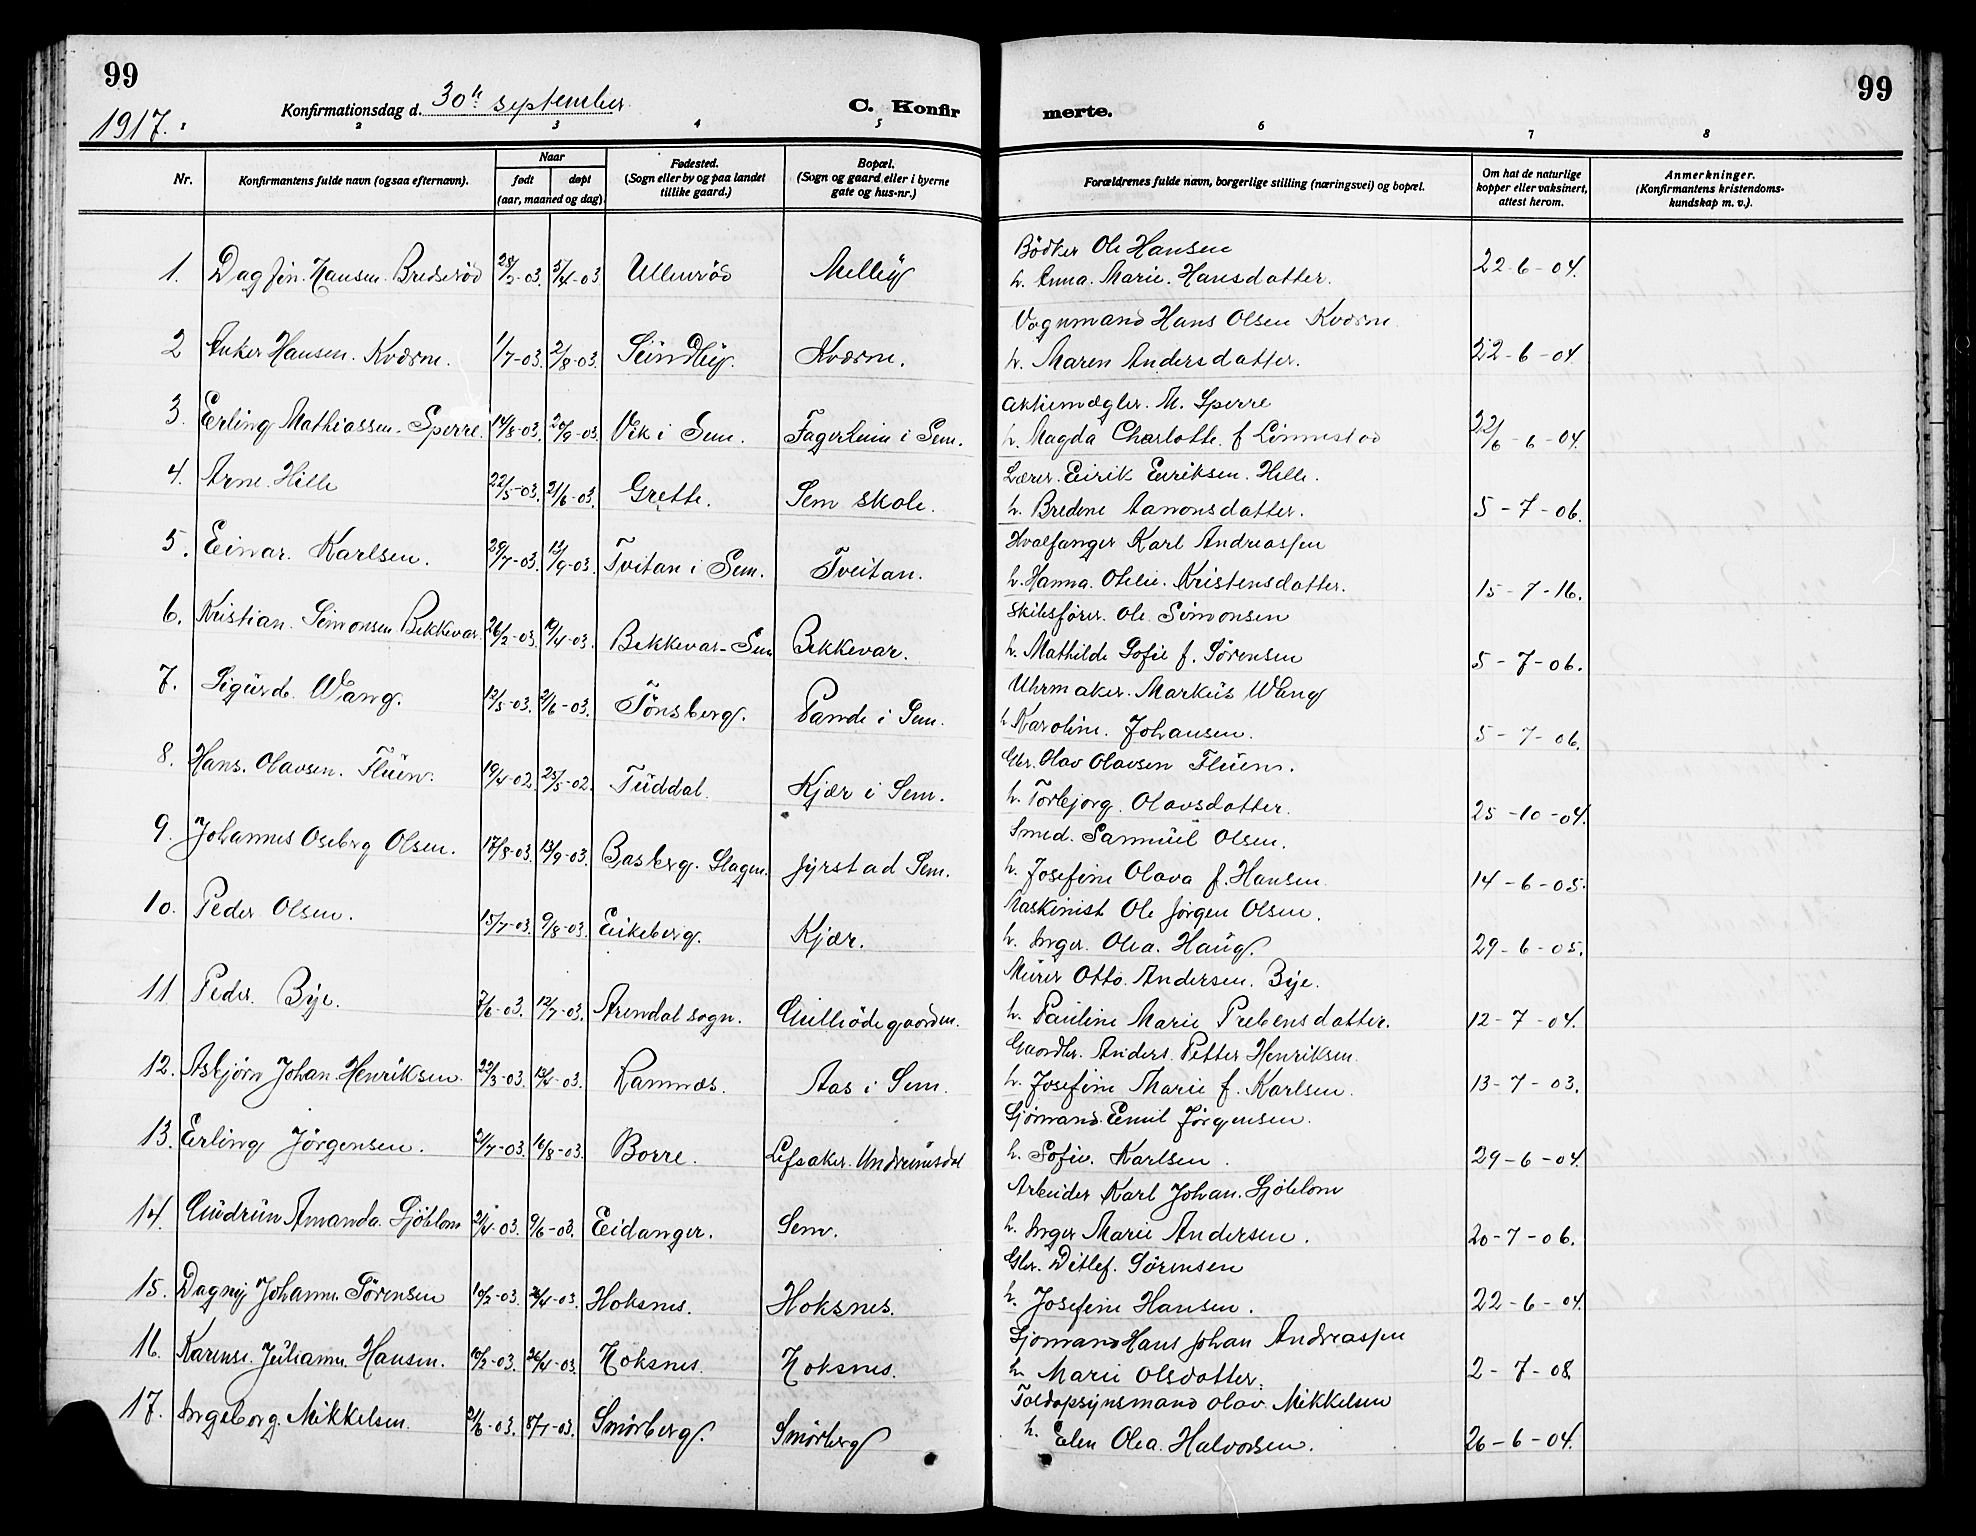 99
1917.
Konfirmationsdag d. 30te september
C. Konfir
merte.
99
1 2 3 4 5 6 7 8
Nr.
Konfirmantens fulde navn (ogsaa efternavn).
Naar
født
døpt
(aar, maaned og dag)
Fødested.
(Sogn eller by og paa landet
tillike gaard.)
Bopæl.
(Sogn og gaard, eller i byerne
gate og hus-nr.)
Forældrenes fulde navn, borgerlige stilling (næringsvei) og bopæl.
Om hat de naturlige
kopper eller vaksinert,
attest herom.
Anmerkninger.
(Konfirmantens kristendoms-
kundskap m. v.).
Bödker Ole Hansen
1. Dagfin. Hansen. Brederöd 28/2-03. 5/4-03 Ullenröd Melley h. Anna. Marie. Hansdatter. 22-6-04.
Vognmand Hans Olsen Kværne
2 Anker Hansen. Kværne. 1/7-03. 2/8-03. Sündbÿ. Kværne. h. Maren Andersdatter. 22-6-04
Aktiemægler. M. Sperre
3. Erling Mathiassen. Sperre. 14/8-03. 20/9-03. Vik i Sem. Fagerheim i Sem. h. Magda Charlotte. f Lönnestad 22/6-6-04.
Lærer. Eirik Eiriksen. Hille.
4. Arne. Hille 22/5-03. 21/6-03. Grette. Sem skole. h. Bredine Aanonsdatter. 5-7-06.
Hvalfanger Karl Andreassen
5. Einar. Karlsen. 29/7-03. 13/9-03. Tvitan i Sem. Tveitan. h. Hanna. Otilie. Kristensdatter. 15-7-16.
Skibsfører. Ole. Simonsen
6. Kristian. Simonsen Bekkevar. 26/2-03. 19/4-03. Bekkevar-Sem Bekkevar. h. Mathilde Sofie f. Sörensen 5-7-06.
Uhrmaker. Markus Wang
7. Sigurd. Wang. 12/5-03. 21/6-03. Tönsberg. Pande i Sem. h Karoline. Johansen. 5-7-06.
Gbr. Olav Olavsen Fluen.
8. Hans. Olavsen. Flüen. 19/4-02. 25/5-02. Tüddal. Kjær i Sem. h. Torbjorg. Olavsdatter. 25-10-04.
Smed. Samuel Olsen.
9. Johannes Oseberg Olsen. 17/8-03. 13/9-03. Basberg. Slagen. Jyrstad Sem. h. Josefine Olava f. Hansen. 14-6-05.
Maskinist Ole Jörgen Olsen.
10. Peder Olsen. 15/7-03. 9/8-03. Eikeberg. Kjær. h. Inger. Olea. Haug. 29-6-05.
Mürer Otto. Andersen. Bye.
11 Peder. Bye. 7/6-03. 12/7-03. Arendal sogn. Gullrödegaarden. h. Pauline Marie Prebensdatter. 12-7-04.
Gaardbr. Anders. Petter Henriksen.
12. Asbjörn Johan Henriksen. 22/3-03. 13/4-03. Ramnæs. Aas i Sem. h. Josefine Marie f. Karlsen. 13-7-03.
Sjömand. Emil Jörgensen.
13. Erling Jörgensen. 21/7-03. 16/8-03. Borre. Lefsaker. Undrumsdal h. Sofie. Karlsen. 29-6-04.
Arbeider Karl Johan. Sjöblom
14. Gudrün Amanda. Sjöblom 21/4-03. 9/6-03. Eidanger. Sem. h. Inger Marie Andersen. 20-7-06.
Gbr. Ditlef. Sörensen
15. Dagny Johanne Sörensen 10/2-03. 26/4-03. Hoksnes. Hoksnes. h. Josefine Hansen. 22-6-04.
Sjömand Hans Johan Andreassen
16. Karense. Julianne. Hansen. 10/2-03. 26/4-03. Hoksnes. Hoksnes. h. Marie Olsdatter. 2-7-08
Toldopsynsmand Olav. Mikkelsen
17. Ingeborg. Mikkelsen. 21/6-03. 5/7-03. Smörberg. Smörberg h. Elen Olea. Halvorsen. 26-6-04.